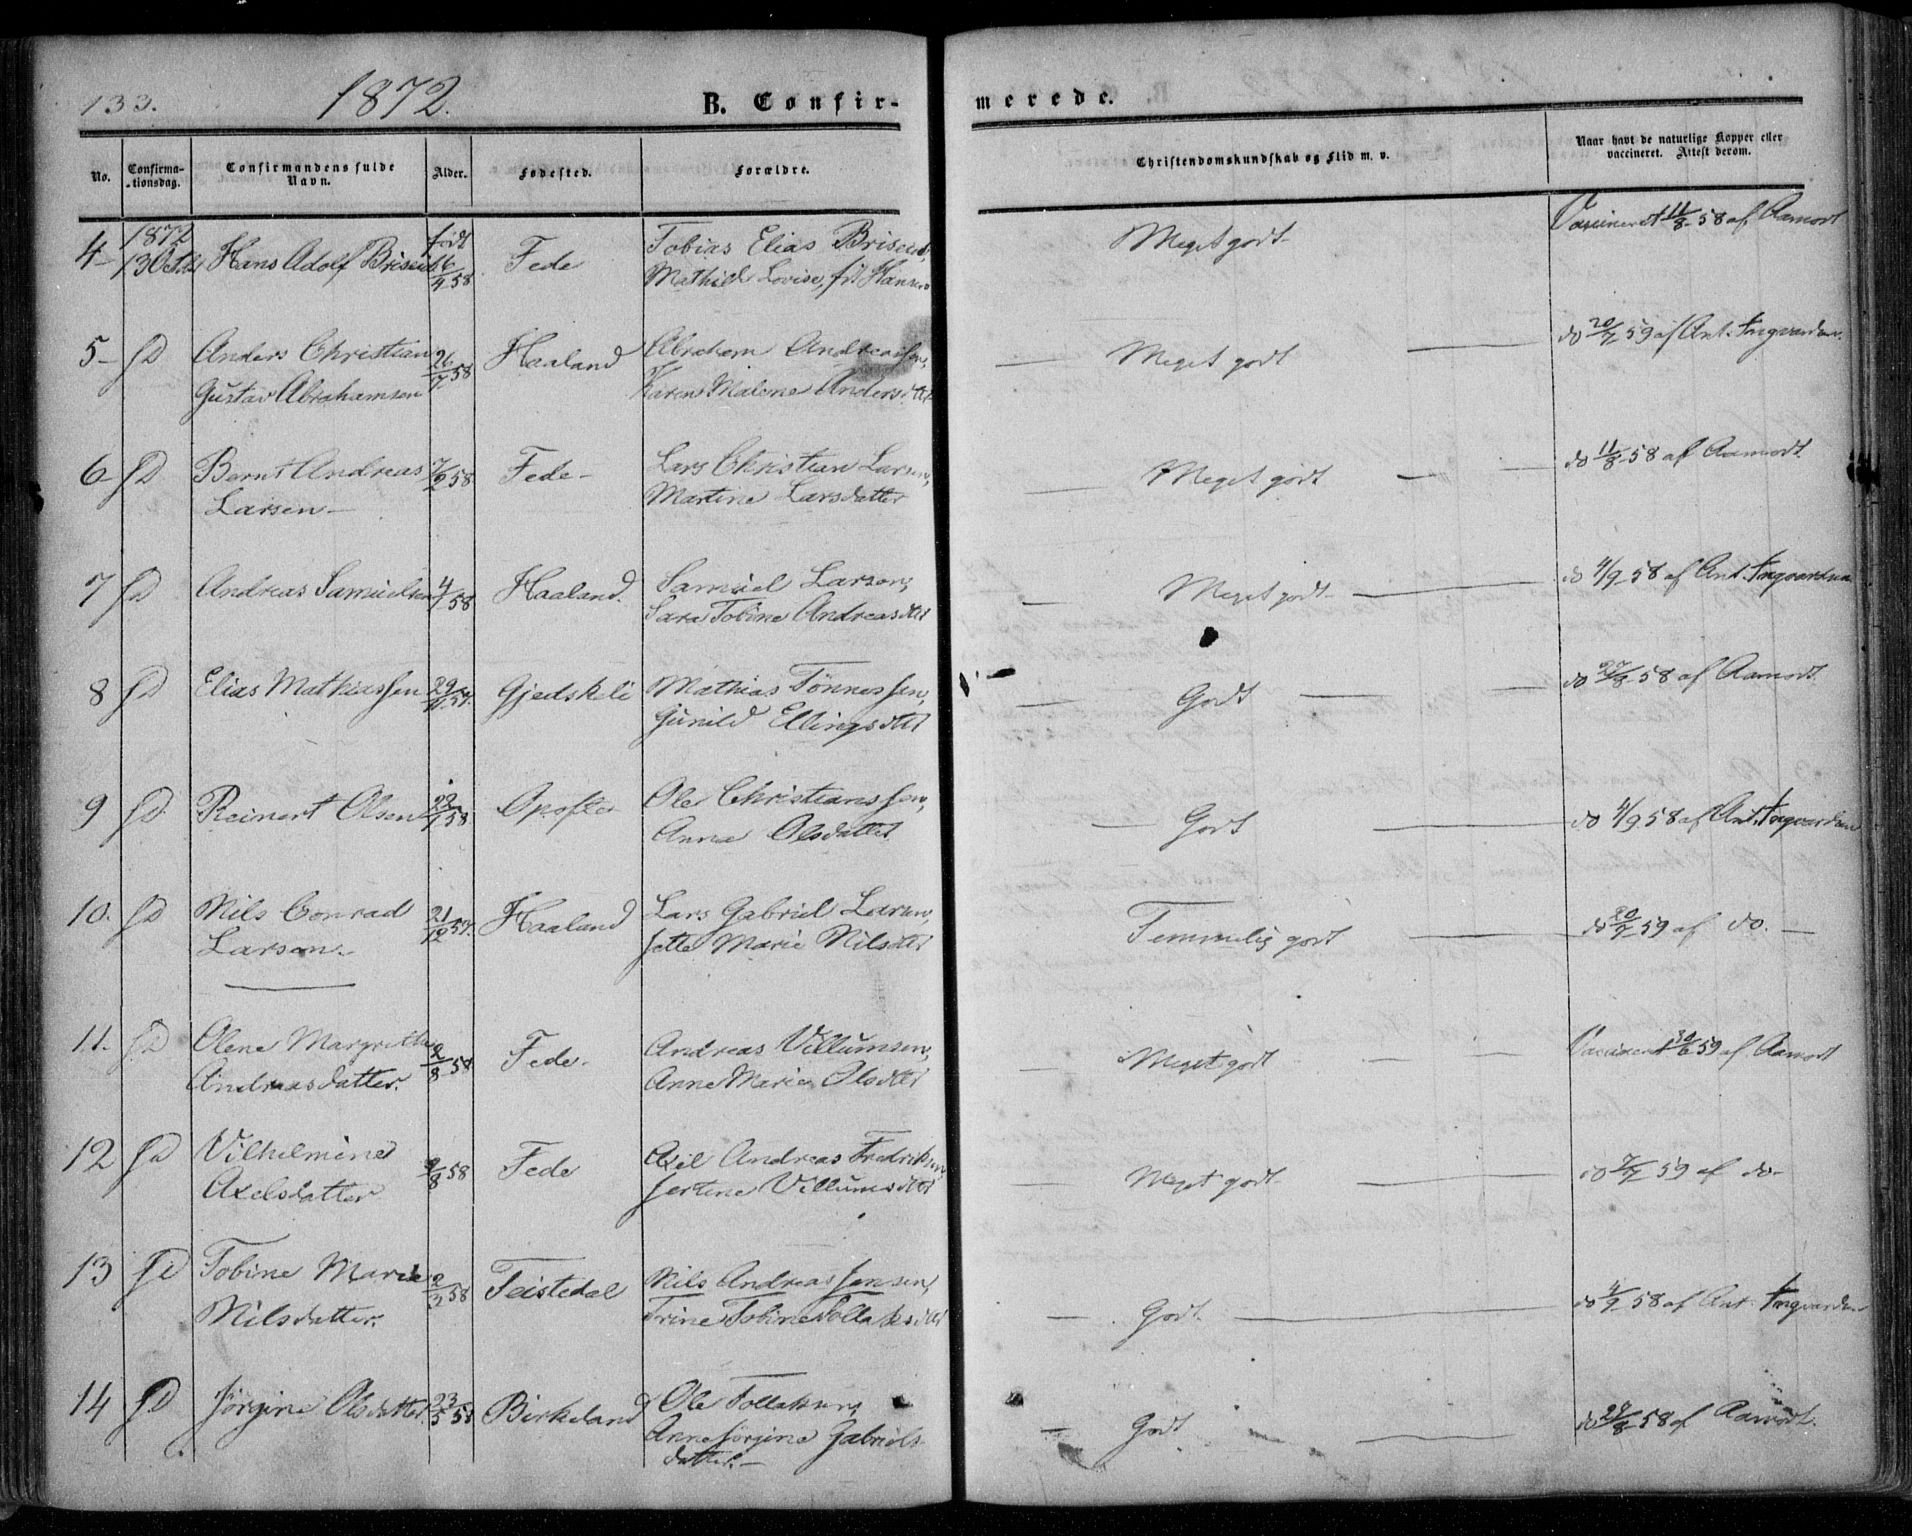 133. 1872. B. Confir- merede.
No. Confirma-tionsdag. Confirmandens fulde Navn. Alder. Fødested. Forældre. Christendomskundskab og Flid m. v. Naar havt de naturlige Kopper eller vaccineret. Attest derom.
4 1872 13 Octbr Hans Adolf født 16/4 58 Fede Tobias Elias Meget godt Vaccineret 11/8 58 af Aamodt
Mathild Lovise, f. Hansen
5 Anders Christian 26/7 58 Haaland Abraham Andreassen, Meget godt do 20/7 59 af Ant. Ingvardsen
Gustav Abrahamsen Karen Malene Andersdtr
6 Bernt Andreas 7/2 58 Fede Lars Christian Larsen, Meget godt do 11/8 58 af Aamodt
Larsen Martine Larsdatter
7 Andreas Samuelsen 4/1 58 Haaland. Samuel Larsen, Meget godt do 4/9 58 af Ant. Ingvardsen
Sara Tobine Andreasdtr
8 Elias Mathiassen 29/11 57. Gjedskeli Mathias Tönnessen, Godt do 27/8 58 af Aamodt
Gunild Ellingsdtr
9 Reinert Olsen 58 Ole Christianssen, Godt do 4/9 58 af Ant. Ingvardsen
Anne Olsdatter
10. Nils Conrad 21/12 57. Haaland Lars Gabriel Larsen, Temmelig godt do 20/7 59 af do.
Larsen Jette Marie Nilsdtr
11. Olene Margrethe 2/8 58 Fede Andreas Villumsen, Meget godt Vaccineret 30/6 59 af Aamodt
Andreasdatter. Anne Marie Olsdtr
12 Vilhelmine 9/8 58 Fede Axel Andreas Fredriksen, Meget godt do 7/7 59 af do
Axelsdatter Jertine Villumsdtr
13 Tobine Marie 2/3 58 Feistedal Nils Andreas Jensen, Godt. do 4/9 58 af Ant. Ingvardsen
Nilsdatter. Trine Tobine Tollaksdtr
14 Jörgine Olsdatter 23/5 58 Birkeland Ole Tollaksen, Godt do 28/8 58 af Aamodt
Anne Jörgine Gabriels-
datter.